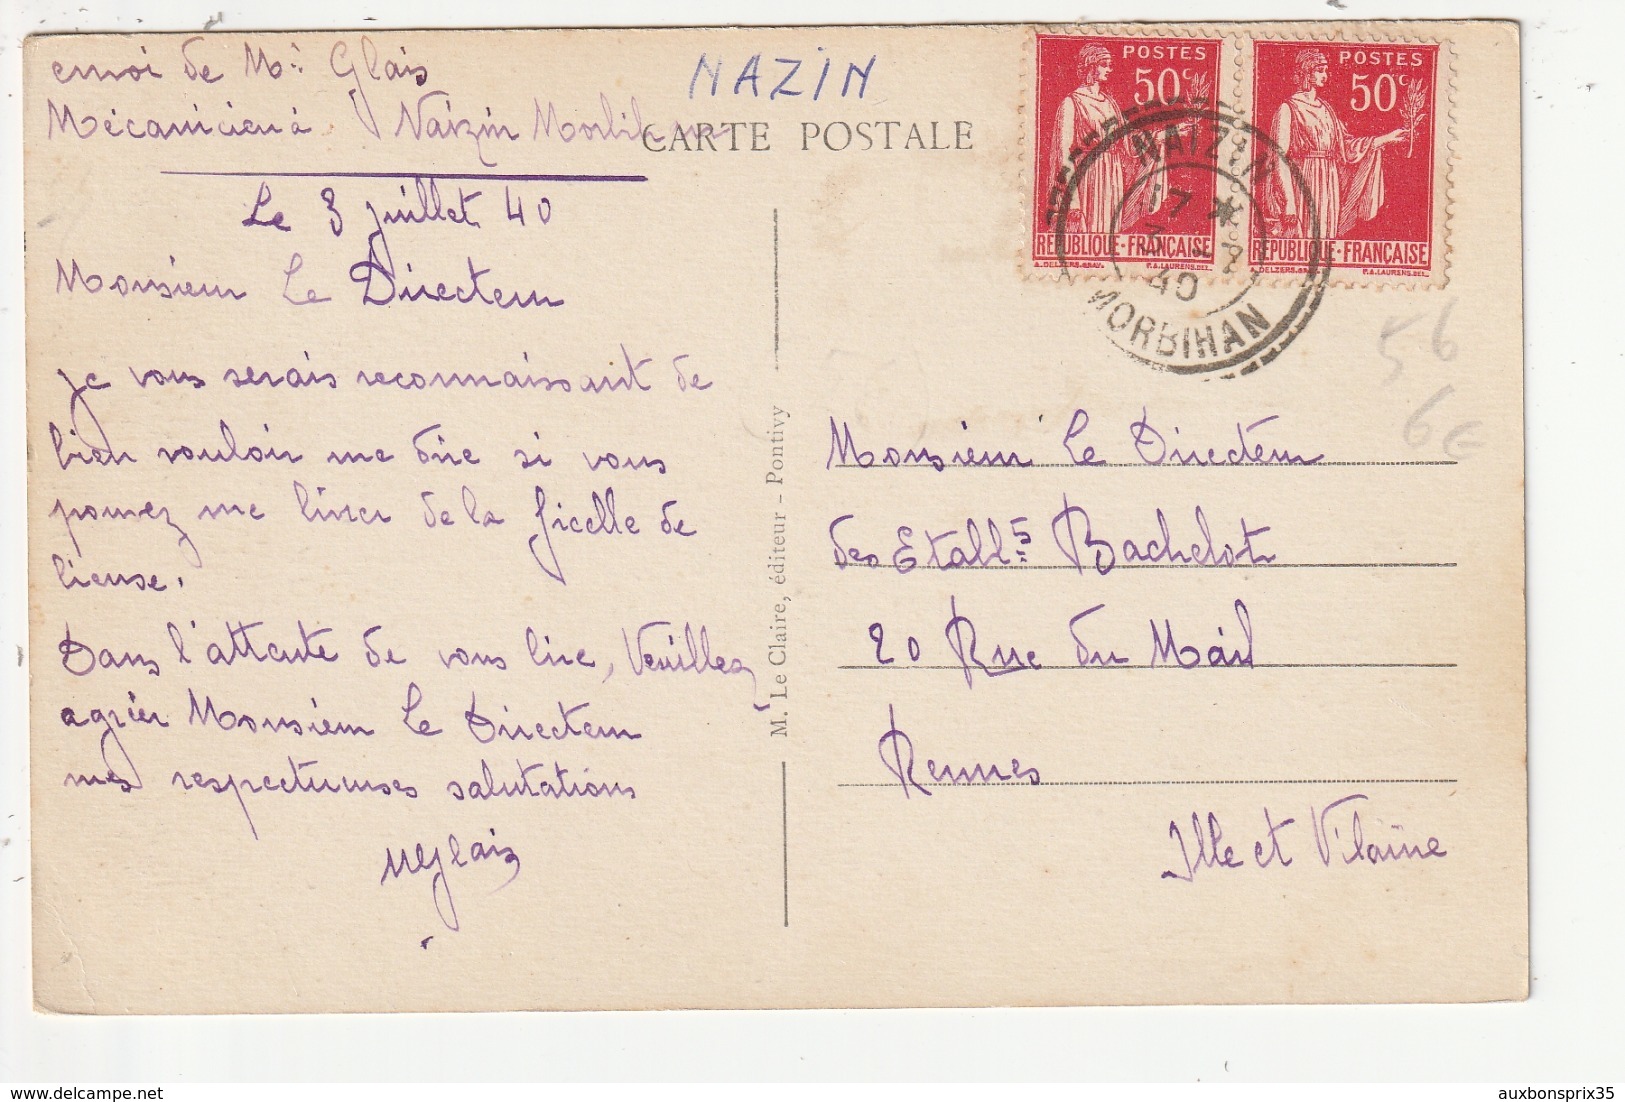 envoi de Mr Glais
Mécanicien à Naizin Morbihan
NAZIN
CARTE POSTALE
Le 3 juillet 40
Monsieur Le Directeur
je vous serais reconnaissant de
bien vouloir me dire si vous
pouvez me livrer de la ficelle de
lieuse.
Dans l'attente de vous lire, Veuillez
agréer Monsieur Le Directeur
mes respectueuses salutations
Glais
M. Le Claire, éditeur - Pontivy
POSTES
50c
REPUBLIQUE-FRANÇAISE
A. DELZERS.GRAV. P.A. LAURENS.DEL.
POSTES
50c
REPUBLIQUE-FRANÇAISE
A. DELZERS.GRAV. P.A. LAURENS.DEL.
NAIZIN
17 *
3 - 7
40
MORBIHAN
56
6€
Monsieur Le Directeur
des Etabl.s Bachelot
20 Rue du Mail
Rennes
Ille et Vilaine
auxbonsprix35